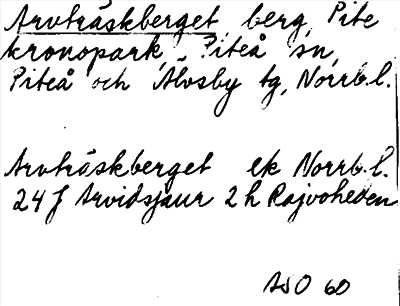 Arvträskberget, berg, Pite
kronopark, Piteå sn,
Piteå och Älvsby tg, Norrb.l.
Arvträskberget ek Norrb.l.
24 f Arvidsjaur 2 h Rajvoheden
ASO 60